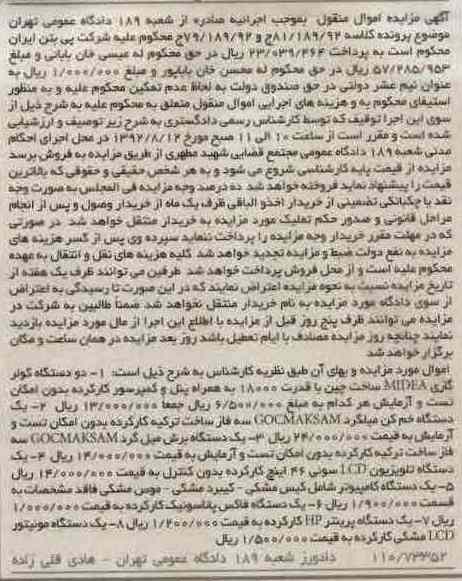 آگهی مزایده اموال منقول بموجب اجرائیه صادره از شعبه ۱۸۹ دادگاه عمومی تهران
موضوع پرونده کلاسه ۸۱/۱۸۹/۹۲ج و ۷۹/۱۸۹/۹۲ج محکوم علیه شرکت پی بتن ایران
محکوم است به پرداخت ۲۳/۰۳۹/۴۶۴ ریال در حق محکوم له عیسی خان بابائی و مبلغ
۵۷/۲۸۵/۹۵۳ ریال در حق محکوم له محسن خان باباپور و مبلغ ۱/۰۰۰/۰۰۰ ریال به
عنوان نیم عشر دولتی در حق صندوق دولت به لحاظ عدم تمکین محکوم علیه و به منظور
استیفای محکوم به و هزینه های اجرایی اموال منقول متعلق به محکوم علیه به شرح ذیل از
سوی این اجرا توقیف که توسط کارشناس رسمی دادگستری به شرح زیر توصیف و ارزشیابی
شده است و مقرر است از ساعت ۱۰ الی ۱۱ صبح مورخ ۱۳۹۲/۸/۱۲ در محل اجرای احکام
مدنی شعبه ۱۸۹ دادگاه عمومی مجتمع قضایی شهید مطهری از طریق مزایده به فروش برسد
مزایده از قیمت پایه کارشناسی شروع می شود و به هر شخص حقیقی و حقوقی که بالاترین
قیمت را پیشنهاد نماید فروخته خواهد شد ده درصد وجه مزایده فی المجلس به صورت وجه
نقد یا چکبانکی تضمینی از خریدار اخذو الباقی ظرف یک ماه از خریدار وصول و پس از انجام
مراحل قانونی و صدور حکم تملیک مورد مزایده به خریدار منتقل خواهد شد در صورتی
که در مهلت مقرر خریدار وجه مزایده را پرداخت ننماید سپرده وی پس از کسر هزینه های
مزایده به نفع دولت ضبط و مزایده تجدید خواهد شد کلیه هزینه های نقل و انتقال به عهده
محکوم علیه است و از محل فروش پرداخت خواهد شد طرفین می توانند ظرف یک هفته از
تاریخ مزایده نسبت به نحوه مزایده اعتراض نمایند که در این صورت تا رسیدگی به اعتراض
از سوی دادگاه مورد مزایده به نام خریدار منتقل نخواهد شد ضمناً طالبین به شرکت در
مزایده می توانند ظرف پنج روز قبل از مزایده با اطلاع این اجرا از مال مورد مزایده بازدید
نمایند چنانچه روز مزایده مصادف با ایام تعطیل باشد روز بعد مزایده در همان ساعت و مکان
برگزار خواهد شد
اموال مورد مزایده و بهای آن طبق نظریه کارشناس به شرح ذیل است: ۱- دو دستگاه کولر
گازی MIDEA ساخت چین با قدرت ۱۸۰۰۰ به همراه پنل و کمپرسور کارکرده بدون امکان
تست و آزمایش هر کدام به مبلغ ۶/۵۰۰/۰۰۰ ریال جمعا ۱۳/۰۰۰/۰۰۰ ریال ۲- یک
دستگاه خم کن میلگرد GOCMAKSAM سه فاز ساخت ترکیه کارکرده بدون امکان تست و
آزمایش به قیمت ۲۴/۰۰۰/۰۰۰ ریال ۳- یک دستگاه برش میل گرد GOCMAKSAM سه
فاز ساخت ترکیه کارکرده بدون امکان تست و آزمایش به قیمت ۱۴/۰۰۰/۰۰۰ ریال ۴- یک
دستگاه تلویزیون LCD سونی ۴۶ اینچ کارکرده بدون کنترل به قیمت ۱۴/۰۰۰/۰۰۰ ریال
۵- یک دستگاه کامپیوتر شامل کیس مشکی - کیبرد مشکی - موس مشکی فاقد مشخصات به
قسمت ۱/۹۰۰/۰۰۰ ریال ۶- یک دستگاه فاکس پاناسونیک کارکرده به قیمت ۱/۰۰۰/۰۰۰
ریال ۷- یک دستگاه پرینتر HP کارکرده به قیمت ۱/۲۰۰/۰۰۰ ریال ۸- یک دستگاه مونیتور
LCD مشکی کارکرده به قیمت ۱/۵۰۰/۰۰۰ ریال
۱۱۰/۷۳۳۵۲ دادورز شعبه ۱۸۹ دادگاه عمومی تهران - هادی قلی زاده